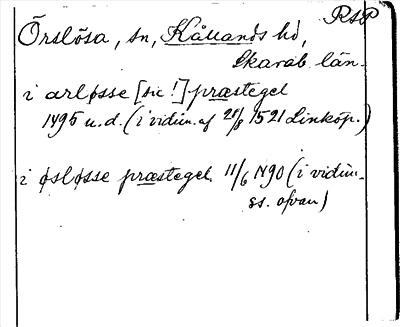 RAP
Örslösa, sn, Kållands hd,
Skarab. län.
i arløsse [sic!] præstegel
1495 u. d. (i vidim. af 28/6 1521 Linköp.)
i øsløsse præstegel 11/6 1490 (i vidim.
ss. ofvan)